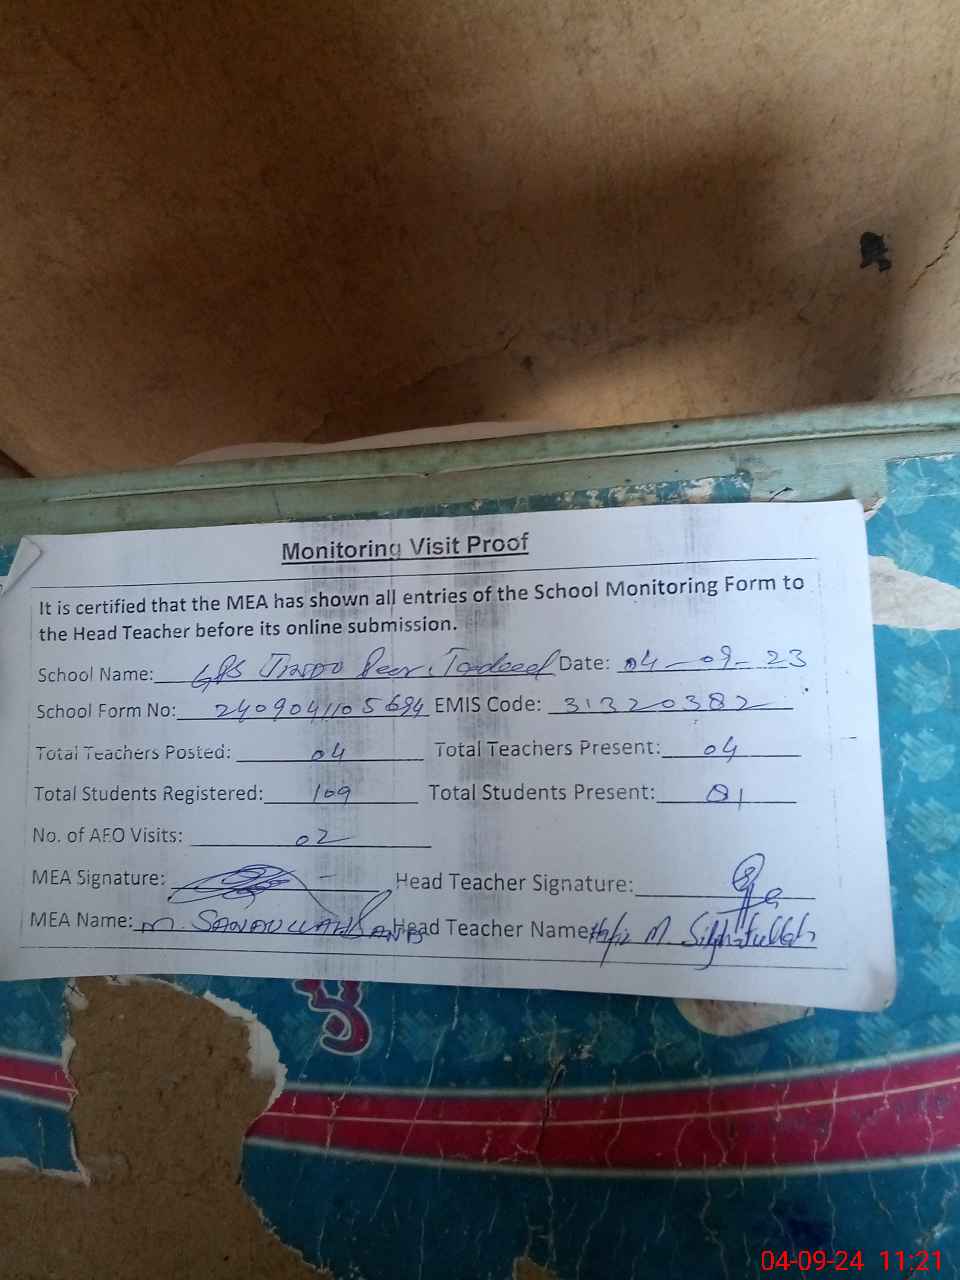 Monitoring Visit Proof
It is certified that the MEA has shown all entries of the School Monitoring Form to
the Head Teacher before its online submission.
School Name: GPS Jindo Peer Date: 04-09-23
School Form No: 2409041105694 EMIS Code: 31320382
Total Teachers Posted: 04 Total Teachers Present: 04
Total Students Registered: 109 Total Students Present: 81
No. of AEO Visits: 02
MEA Signature: Head Teacher Signature:
MEA Name: M. SANAULLAH Head Teacher Name: Hafiz M. Sibghatullah
04-09-24 11:21